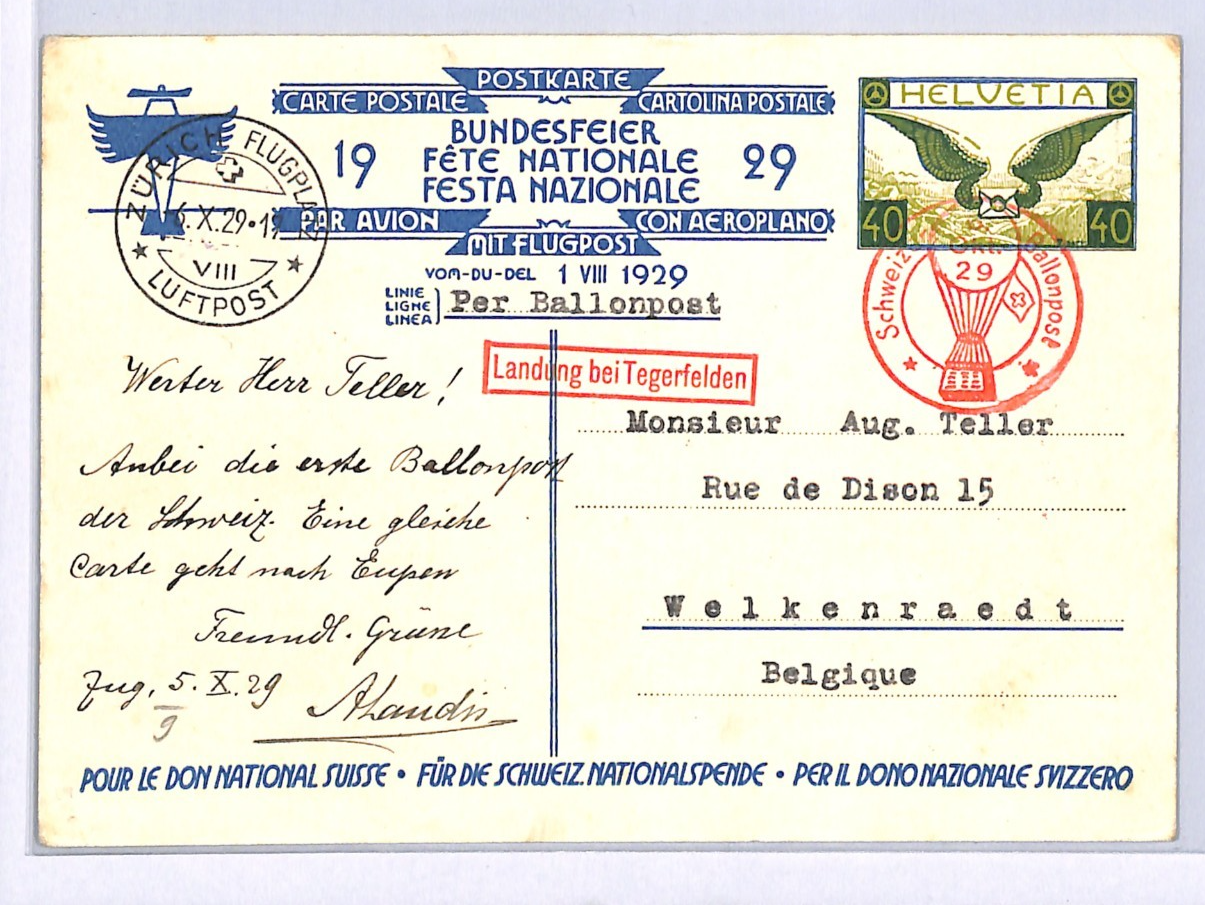 POSTKARTE
CARTE POSTALE CARTOLINA POSTALE
HELVETIA
BUNDESFEIER
19 FÊTE NATIONALE 29
FESTA NAZIONALE
PAR AVION CON AEROPLANO
MIT FLUGPOST
40 40
VOM-DU-DEL 1 VIII 1929
LINIE
LIGNE
LINEA
Per Ballonpost
ZÜRICH FLUGPLATZ
6.X.29
VIII
LUFTPOST
Schweiz. Ballonpost
Okt.
29
Landung bei Tegerfelden
Werter Herr Teller!
Anbei die erste Ballonpost
der Schweiz. Eine gleiche
Carte geht nach Eupen
Freundl. Grüne
Zug, 5. X. 29
9
Monsieur Aug. Teller
Rue de Dison 15
Welkenraedt
Belgique
POUR LE DON NATIONAL SUISSE • FÜR DIE SCHWEIZ. NATIONALSPENDE • PER IL DONO NAZIONALE SVIZZERO